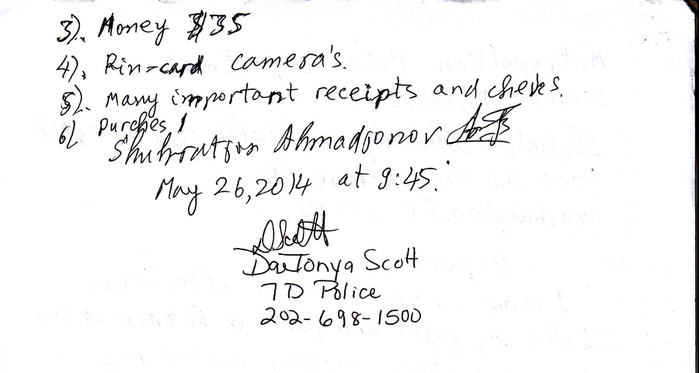 3). Money $35
4). Rin-card camera's.
5). Many important receipts and cheks.
6) purches 1
Ahmadjonov
May 26, 2014 at 9:45.
DScott
DaeTonya Scott
7D Police
202-698-1500